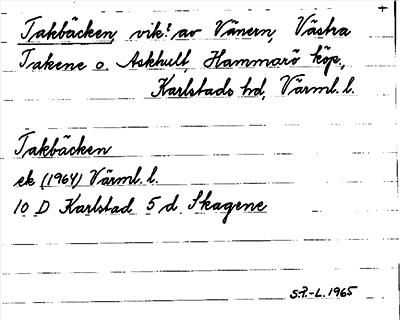 Takbäcken, vik? av Vänern, Västra
Takene o. Askhult, Hammarö köp.,
Karlstads hd, Värml. l.
Takbäcken
ek (1964) Värml. l.
10 D Karlstad 5 d Skagene
S.P.-L. 1965